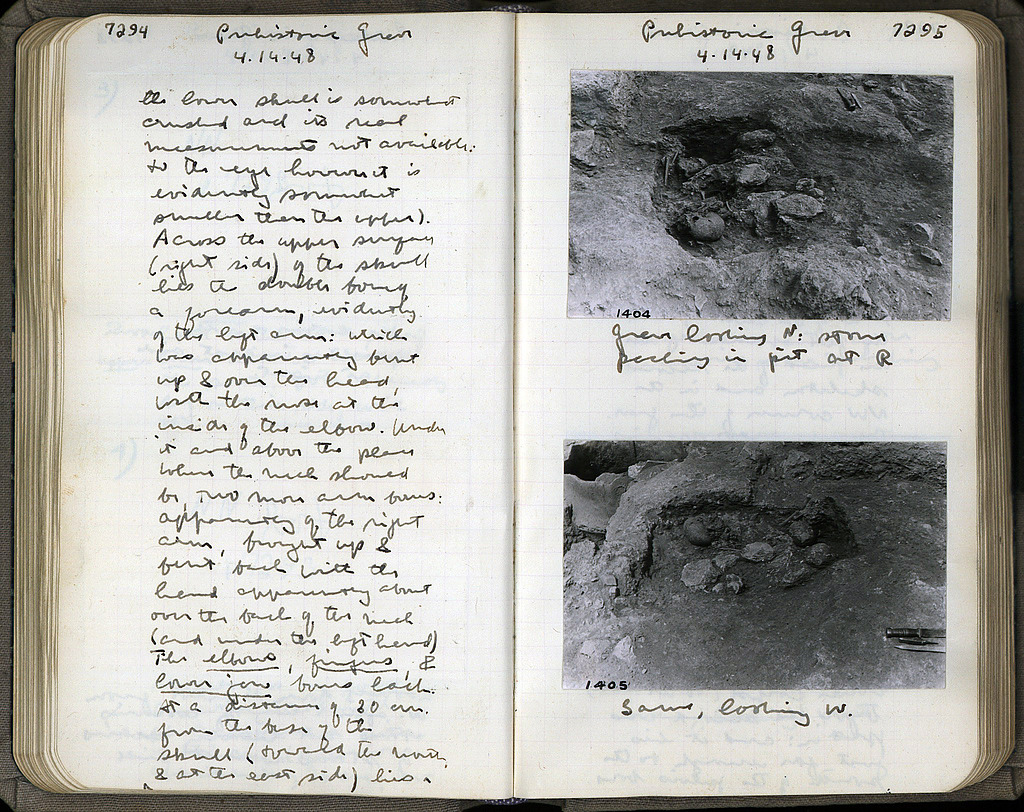 7294
Prehistoric Grave
4.14.48
the lower skull is somewhat
crushed and its real
measurements not available:
to the eye however it is
evidently somewhat
smaller than the upper).
Across the upper surface
(right side) of the skull
lies the doubled bones of
a forearm, evidently
of the left arm: which
was apparently bent
up & over the head,
with the nose at the
inside of the elbow. Under
it and above the place
where the neck should
be, two more arm bones:
apparently of the right
arm, brought up &
bent back with the
hand apparently about
over the back of the neck
(and under the left hand)
The elbows, fingers, &
lower jaw bones lack.
At a distance of 20 cm.
from the base of the
skull (toward the north,
& at the east side) lies a
Prehistoric Grave
7295
4.14.48
1404
Grave looking N: stone
packing in pit at R
1405
Same, looking W.